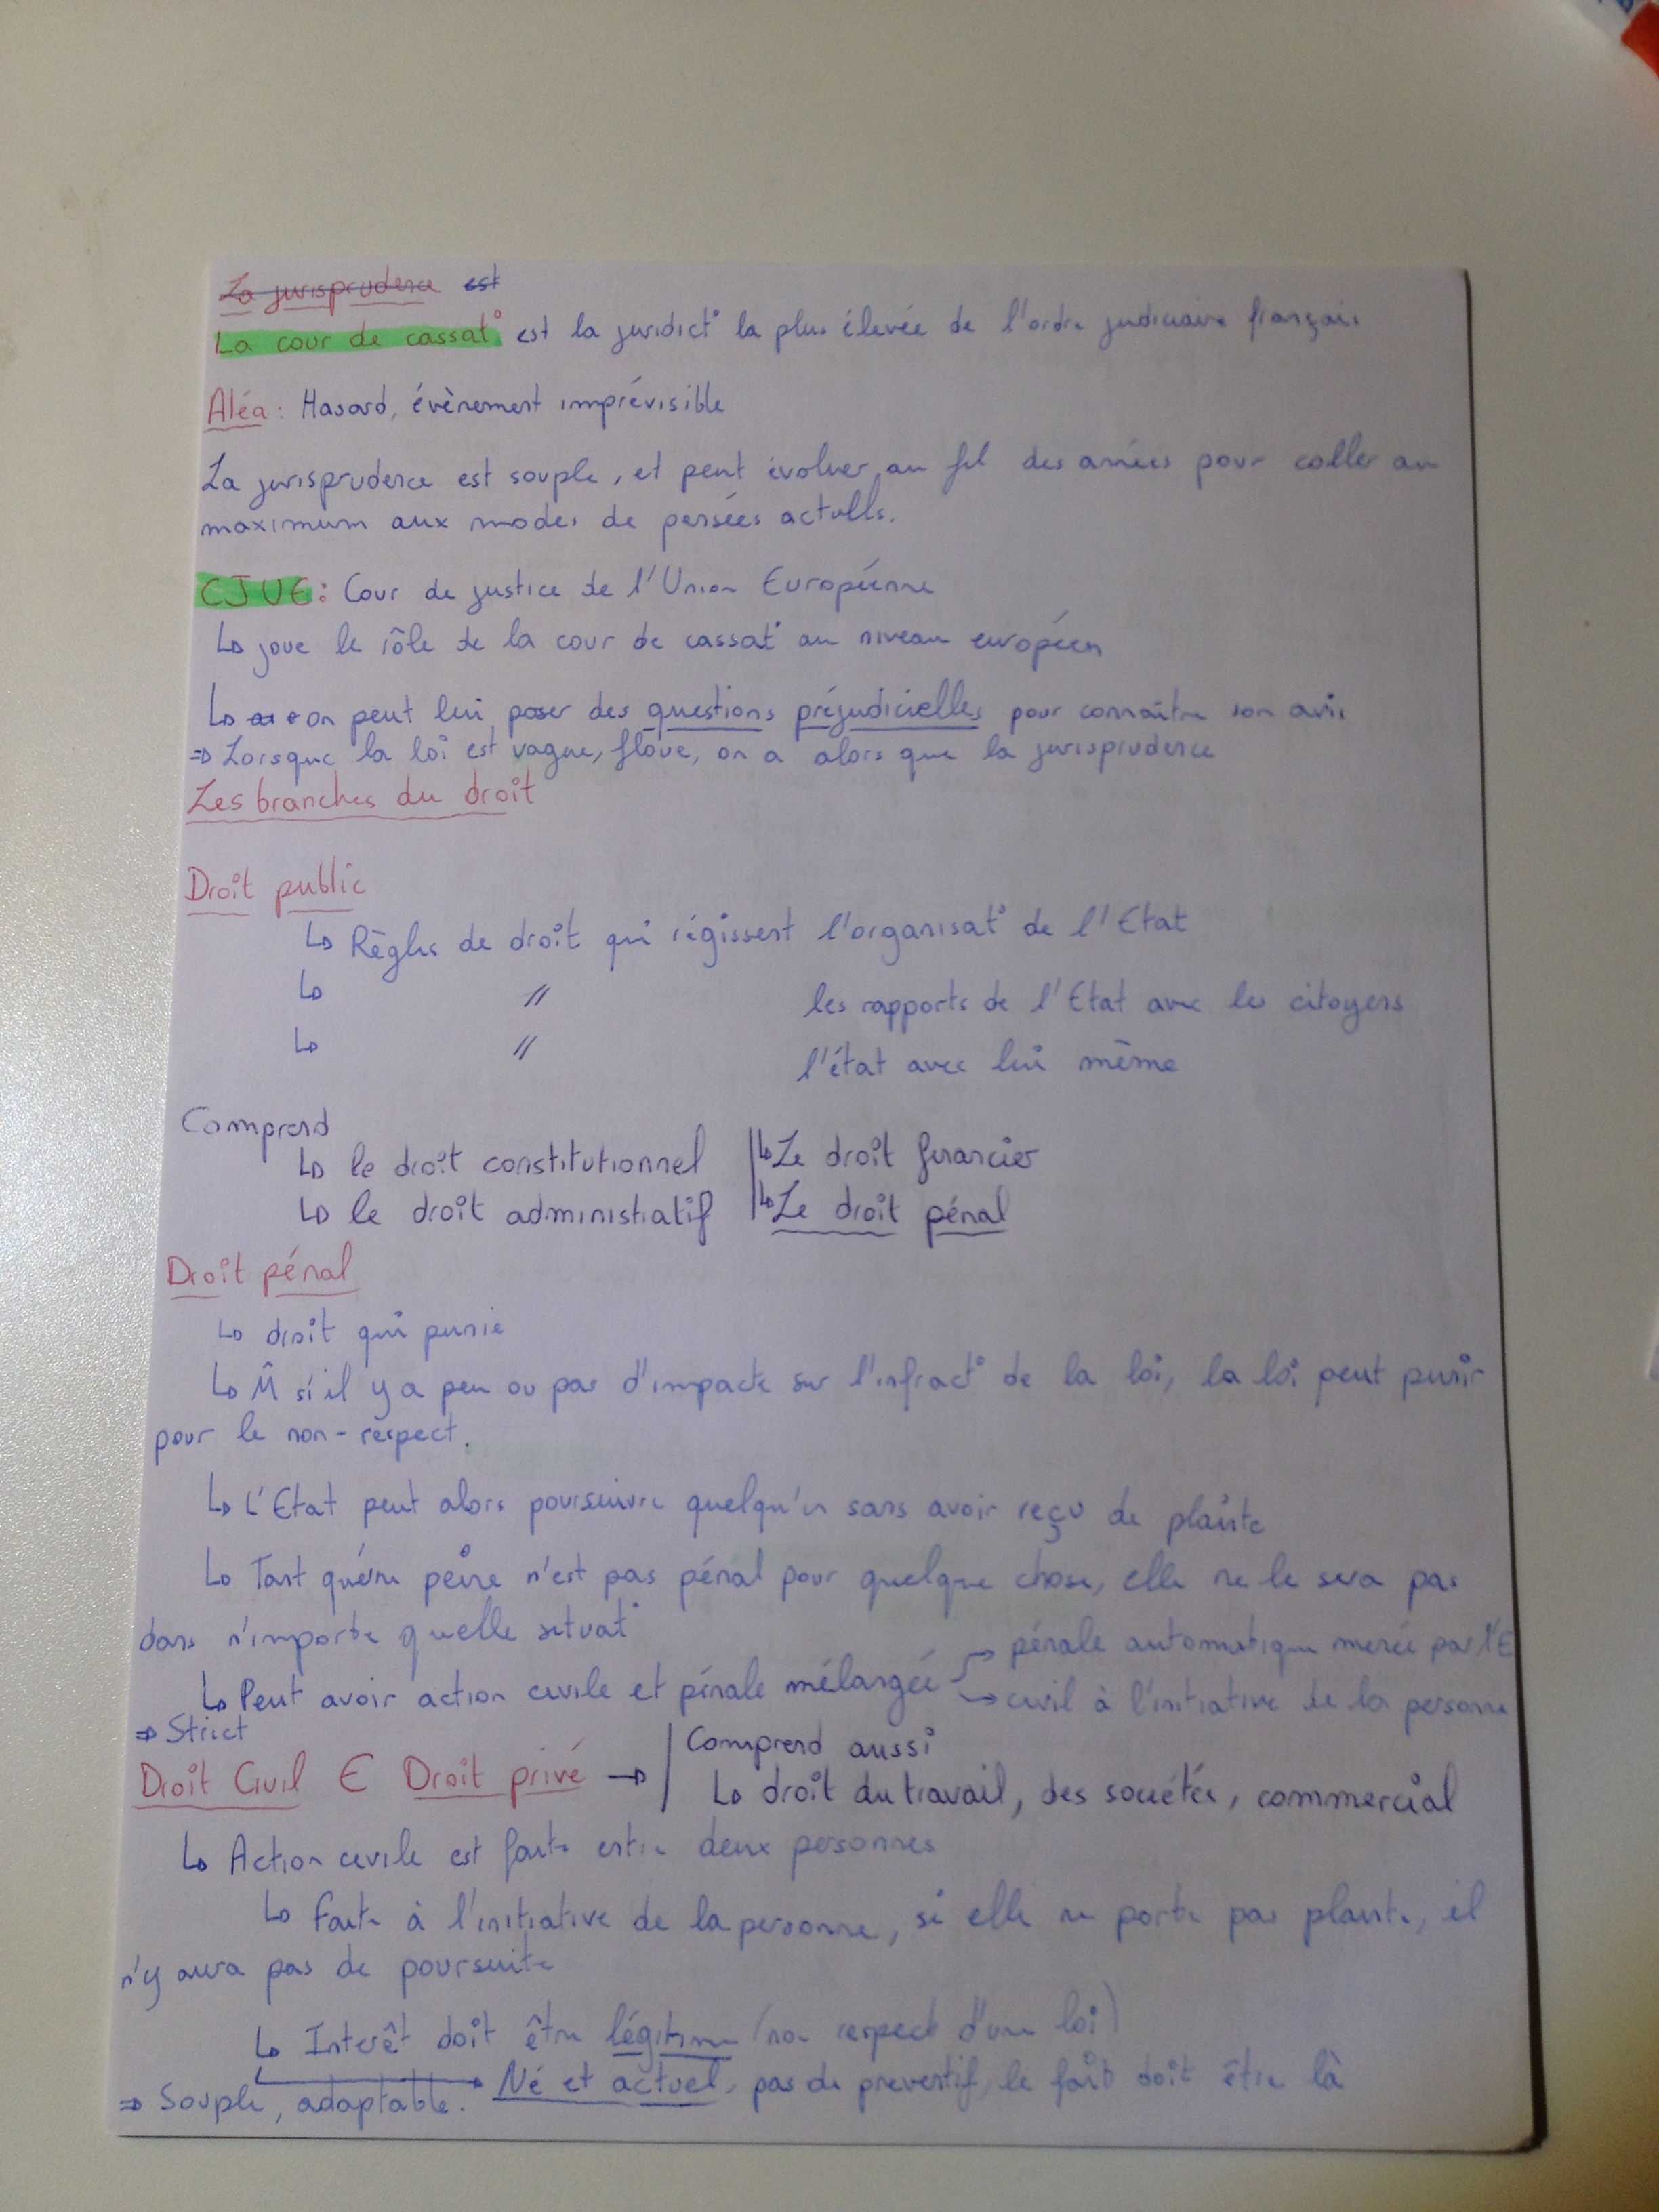 La jurisprudence est
La cour de cassat° est la juridict° la plus élevée de l'ordre judiciaire français
Aléa : Hasard, évènement imprévisible
La jurisprudence est souple, et peut évoluer au fil des années pour coller au
maximum aux modes de pensées actuells.
CJUE : Cour de justice de l'Union Européenne
↳ joue le rôle de la cour de cassat° au niveau européen
↳ on peut lui poser des questions préjudicielles pour connaître son avis
⇒ Lorsque la loi est vague, floue, on a alors que la jurisprudence
Les branches du droit
Droit public
↳ Règles de droit qui régissent l'organisat° de l'Etat
↳ // les rapports de l'Etat avec les citoyens
↳ // l'état avec lui même
Comprend
↳ le droit constitutionnel | ↳ Le droit financier
↳ le droit administratif | ↳ Le droit pénal
Droit pénal
↳ droit qui punie
↳ M̂ si il y a peu ou pas d'impacte sur l'infract° de la loi, la loi peut punir
pour le non-respect.
↳ L'Etat peut alors poursuivre quelqu'un sans avoir reçu de plainte
↳ Tant qu'une peine n'est pas pénal pour quelque chose, elle ne le sera pas
dans n'importe quelle situat°
→ pénale automatique menée par l'E
↳ Peut avoir action civile et pénale mélangée → civil à l'initiative de la personne
⇒ Strict
Droit Civil ∈ Droit privé → | Comprend aussi
↳ droit du travail, des sociétés, commercial
↳ Action civile est faite entre deux personnes
↳ Faite à l'initiative de la personne, si elle ne porte pas plainte, il
n'y aura pas de poursuite
↳ Interêt doit être légitime (non respect d'une loi)
→ Né et actuel, pas de preventif, le fait doit être là
⇒ Souple, adaptable.